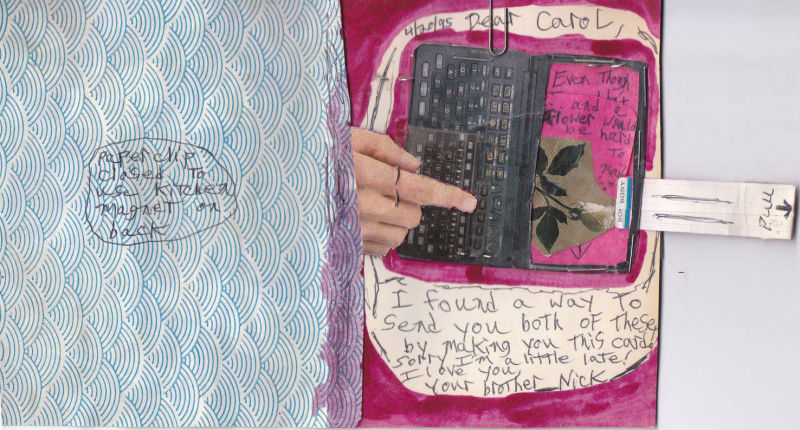 Paperclip
closed to
use kitchen
magnet on
back
4/20/95 Dear Carol,
Even Though
and a
flower would
be hard
to
SONY
Pull
I found a way to
send you both of these
by making you this card.
Sorry I'm a little late!
I love you,
your brother Nick